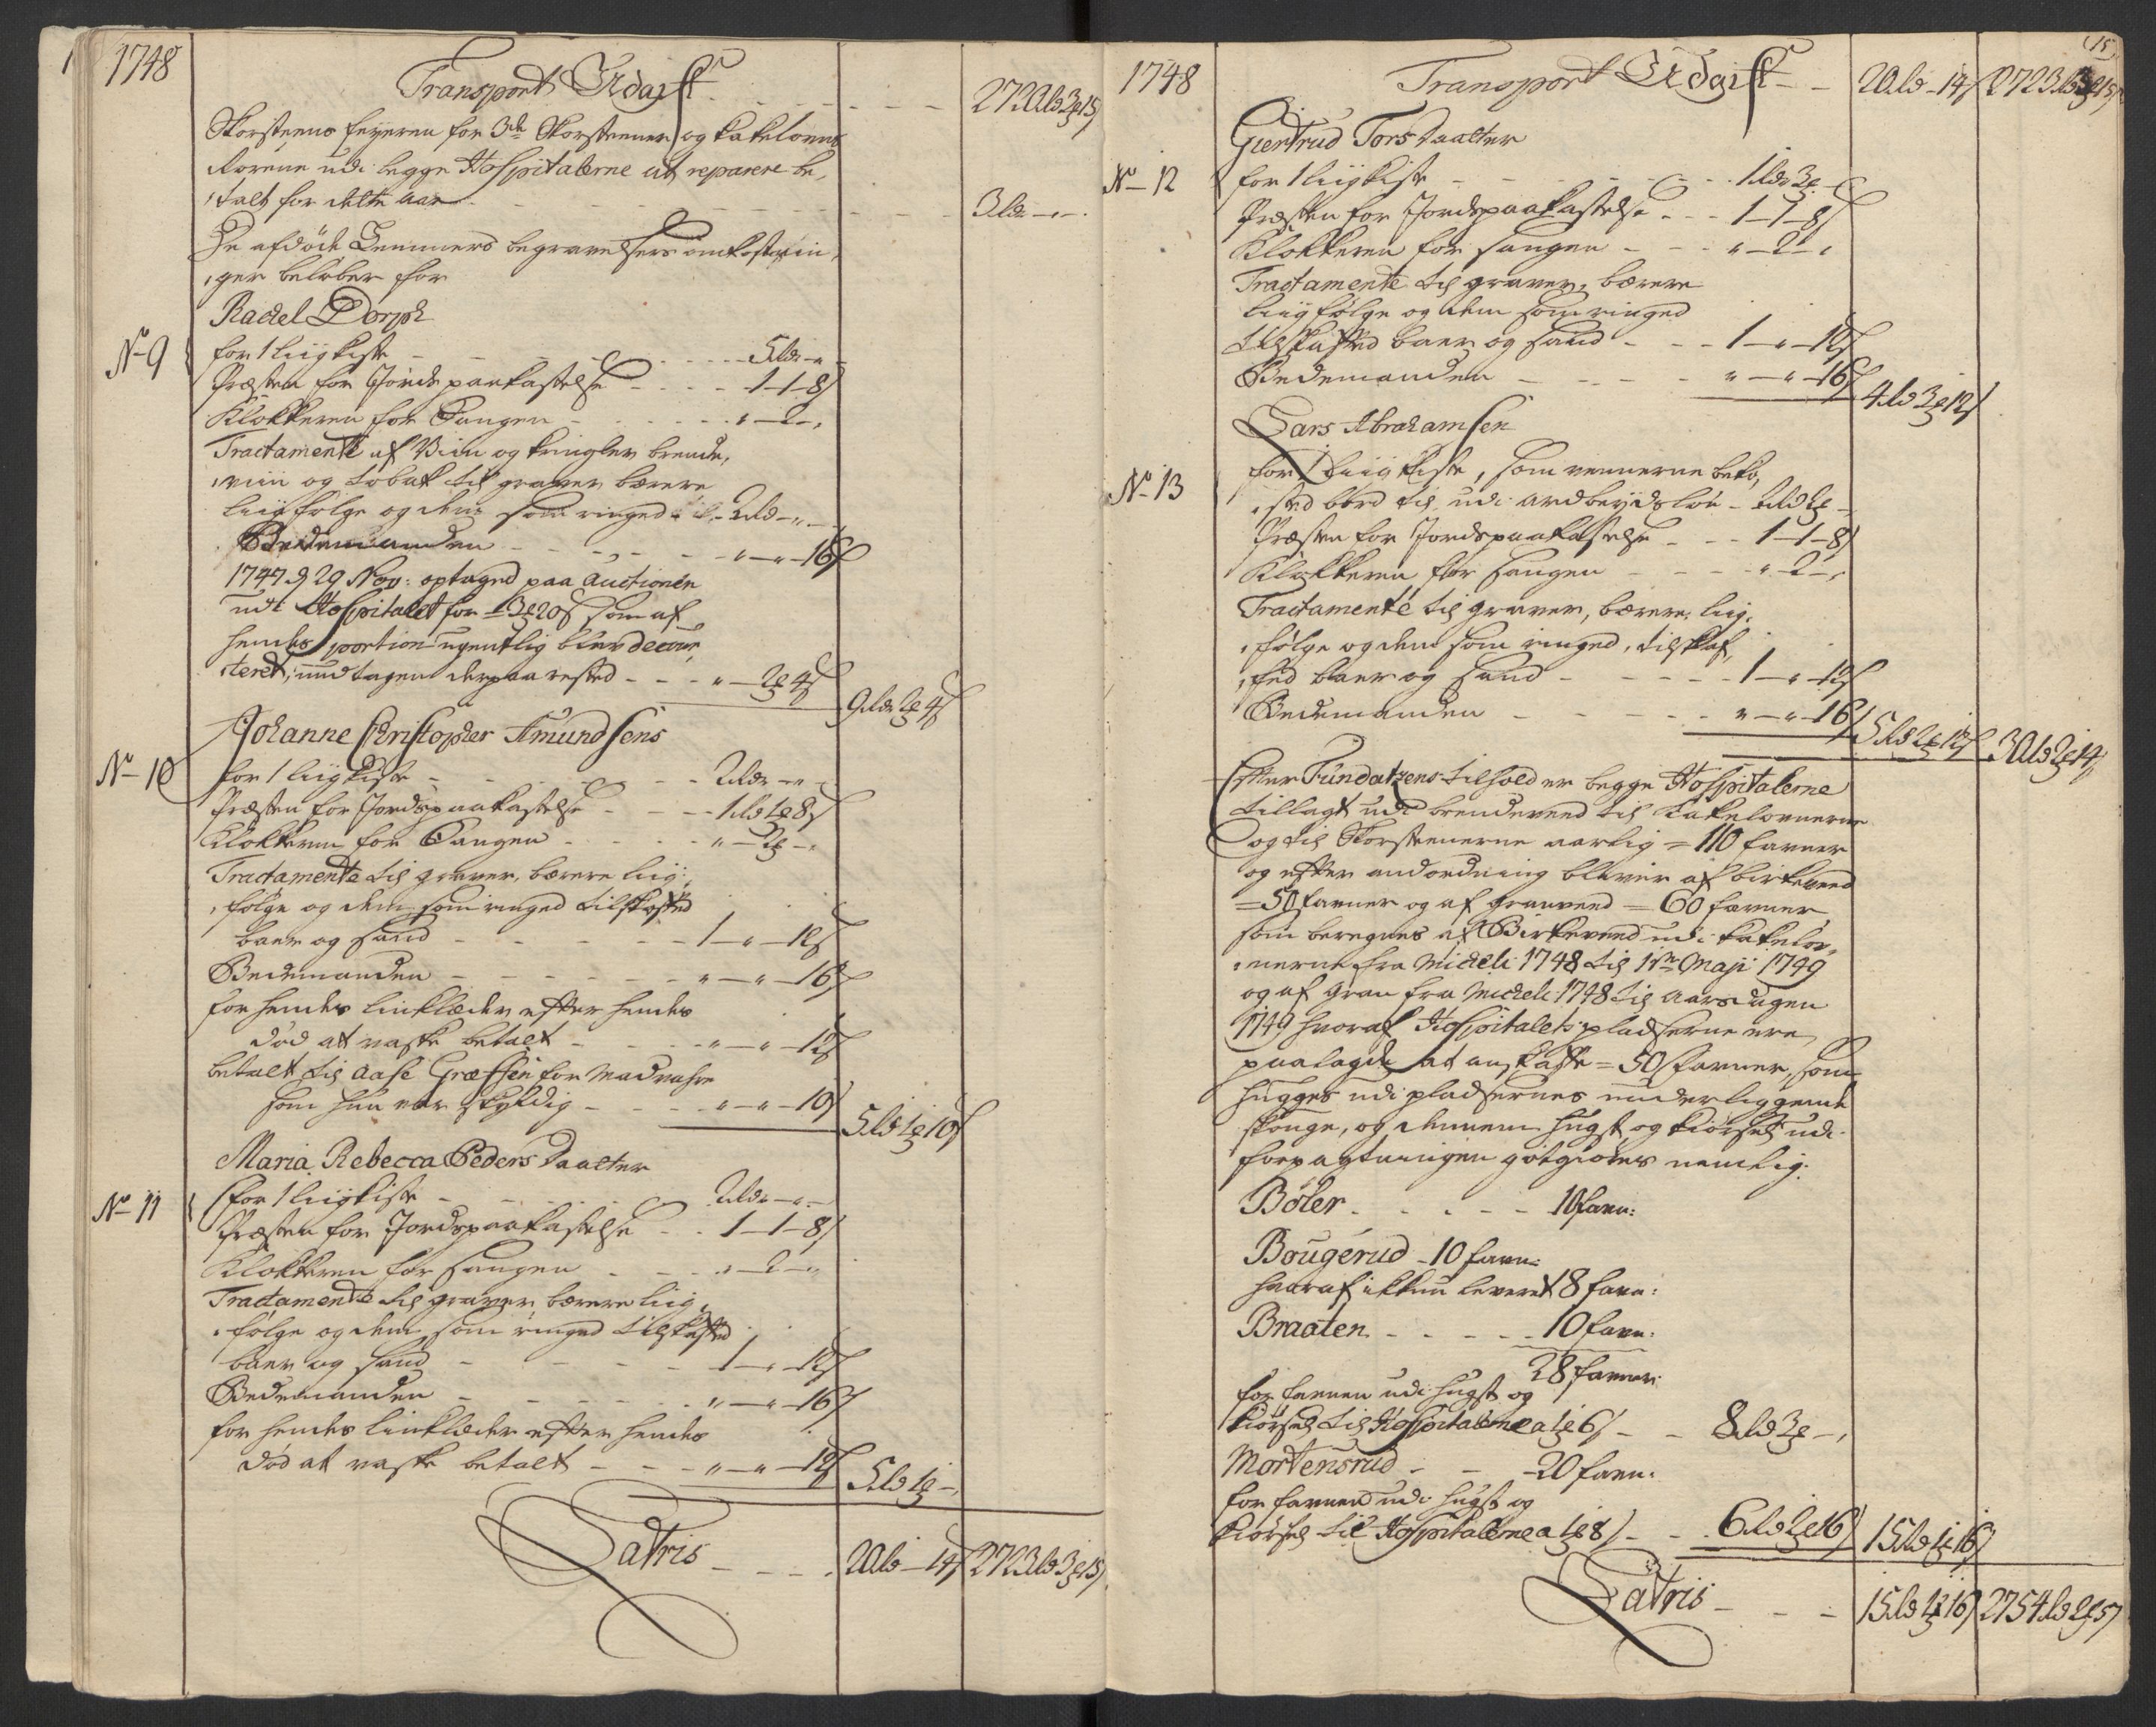 1748
Transport Udgift - - - - - - 2720 rd 3 ort 15 s
Skorsteens feyeren for 3de Skorsteener og kakelovns
Rørene udi begge Hospitalerne at reparere be-
talt for dette aar - - - - - - 3 rd - " -
De afdøde Lemmers begravelsers omkostnin-
ger beløber for
Rachel Dorph
No 9 for 1 liigkiste - - - - 5 rd - " -
Præsten for Jords paakastelse - - - 1 - 1 - 8 s
Klokkeren for Sangen - - - - " - 2 - "
Tractamente af Viin og kringler brende-
viin og tobak til graver bærere
liigfølge og dem som ringed - 2 rd - " -
Bedemanden - - - - " - " - 16 s
1747 d 29 Nov: optaged paa Auctionen
udi Hospitalet for - 3 ort 20 s som af
hendes portion ugentlig blev decour-
teret, undtagen derpaa rested - - - " - 2 ort 4 s 9 rd 2 ort 4 s
Johanne Christopher Amundsens
No 10 for 1 liigkiste - - - - 2 rd - " -
Præsten for Jordspaakastelse - - - 1 rd 1 ort 8 s
Klokkeren for Sangen - - - - " - 2 ort - "
Tractamente til graver, bærere liig-
følge og dem som ringed tilskafed
baer og sand - - - - - 1 - " - 12 s
Bedemanden - - - - - " - " - 16 s
for hendes linklæder efter hendes
død at vaske betalt - - - " - " - 12 s
betalt til Aase Græssen for Madvahre
som hun var skyldig - - - - " - " - 10 s 5 rd 1 ort 10 s
Maria Rebecca Peders Daatter
No 11 for 1 liigkiste - - - - 2 rd - " -
Præsten for Jordspaakastelse - - 1 - 1 - 8 s
Klokkeren for sangen - - - " - 2 - "
Tractamente til graver, bærere liig-
følge og dem som ringed tilskafed
baer og sand - - - - 1 - " - 12 s
Bedemanden - - - - - " - " - 16 s
for hendes linklæder efter hendes
død at vaske betalt - - - " - " - 12 s 5 rd 1 ort -
Latris - - - - 20 rd - 14 s 2723 rd 3 ort 15 s
15
1748
Transport Udgift - - 20 rd - 14 s 2723 rd 3 ort 15 s
Giertrud Tors Daatter
No 12 for 1 liigkiste - - - - - 1 rd 3 ort -
Præsten for Jordspaakastelse - - - 1 - 1 - 8 s
Klokkeren for sangen - - - " - 2 - "
Tractamente til graver, bærere
liigfølge og dem som ringed
tilskafed baer og sand - - - 1 - " - 12 s
Bedemanden - - - - " - " - 16 s 4 rd 3 ort 12 s
Lars Abrahamsen
No 13 for 1 liigkiste, som vennerne beko-
sted bord til, udi ardbeydsløn - 2 rd 2 ort -
Præsten for Jordspaakastelse - - - 1 - 1 - 8 s
Klokkeren for sangen - - - - " - 2 - "
Tractamente til graver, bærere, liig-
følge og dem som ringed, tilskaf-
fed baer og sand - - - - - 1 - " - 12 s
Bedemanden - - - - - " - " - 16 s 5 rd 2 ort 12 s 30 rd 2 ort 14 s
Efter Fundatzens tilhold er begge Hospitalerne
tillagt udi brendeveed til Kakelovnerne
og til Skorsteenerne aarlig = 110 favner
og efter andordning bliver af birkeveed
= 50 favner og af granveed = 60 favner
som beregnes af Birkeveed udi kakelov-
nerne fra Micheli 1748 til 1ste Maji 1749
og af gran fra Micheli 1748 til Aarsdagen
1749 hvoraf Hospitalets pladserne ere
paalagde at anskaffe = 50 favner, som
hugges udi pladsernes underliggende
skouge, og dennem hugst og kiørsel udi
forpagtningen gotgiøres nemlig:
Bøler - - - - - 10 favn:
Bougerud - 10 favn:
hvoraf ikkun leveret 8 favn:
Braaten - - - - - 10 favn:
28 favner
for favnen udi hugst og
kiørsel til Hospitalerne a 1 ort 6 s - - 8 rd 3 ort - "
Mortensrud - - - 20 favn:
for favnen udi hugst og
kiørsel til Hospitalerne a 1 ort 8 s - - 6 rd 2 ort 16 s 15 rd 1 ort 16 s
Latris - - - 15 rd 1 ort 16 s 2754 rd 2 ort 5 s